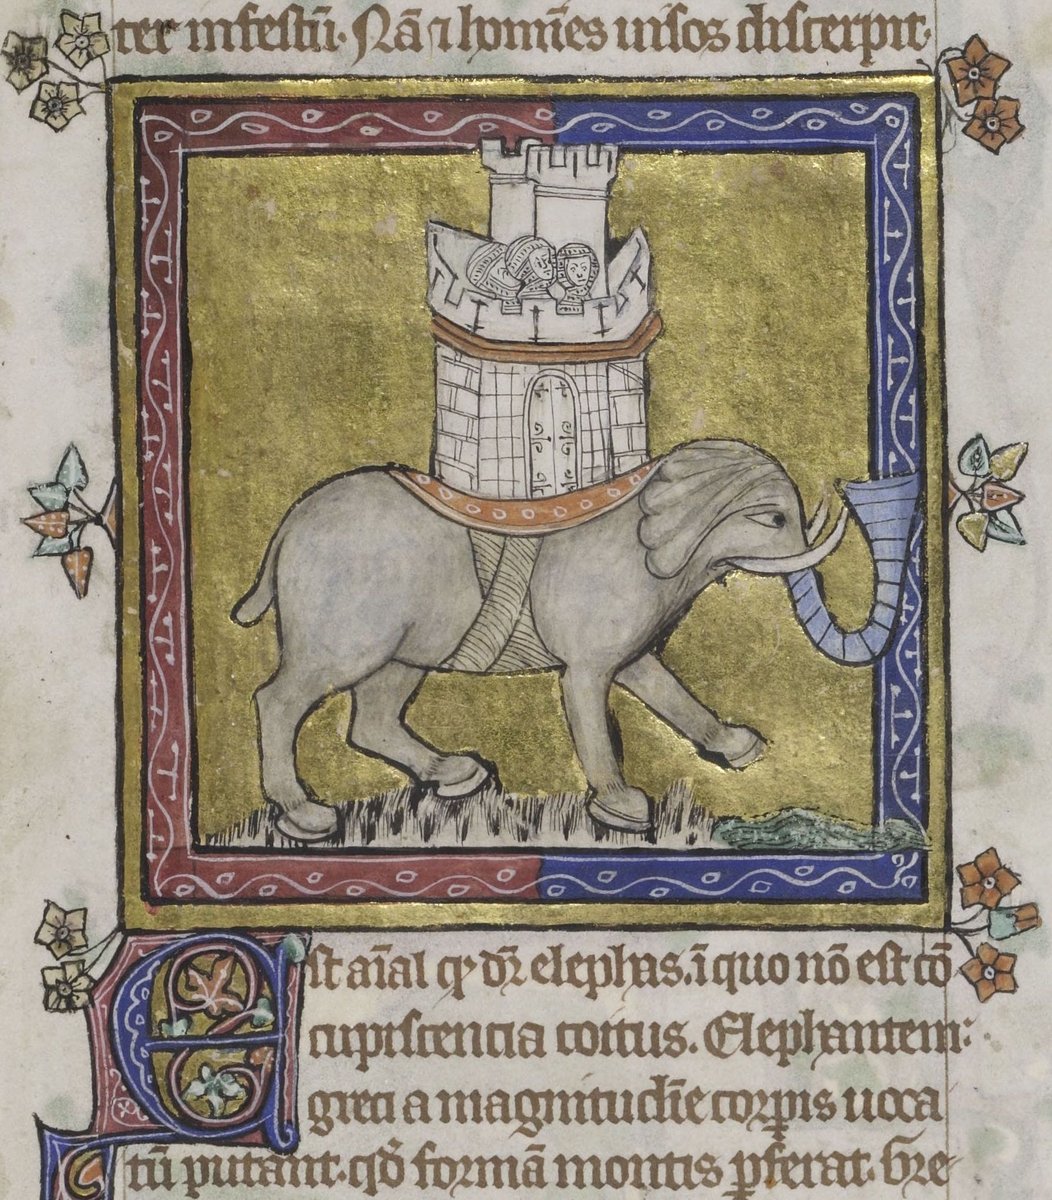 ter infestū. Nā ⁊ hom̄ies uisos discerpit.
Est aīal qđ dr̄ elephas. ī quo nō est cō
cupiscencia coitus. Elephantem
greci a magnitudīe corꝑis uoca
tū putant. qđ formā montis p̄ferat. Gre